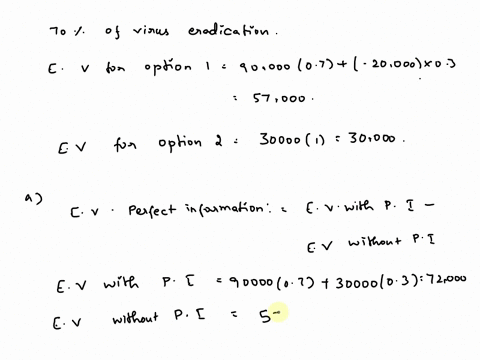 70 % of virus eradication.
E. V for option 1 = 90,000 (0.7) + (-20,000) x 0.3
= 57,000.
E. V for option 2 = 30000 (1) = 30,000.
a) E. V. Perfect information: = E. V. with P. I -
E. V without P. I
E. V with P. I = 90000 (0.7) + 30000 (0.3) = 72,000
E. V without P. I = 5